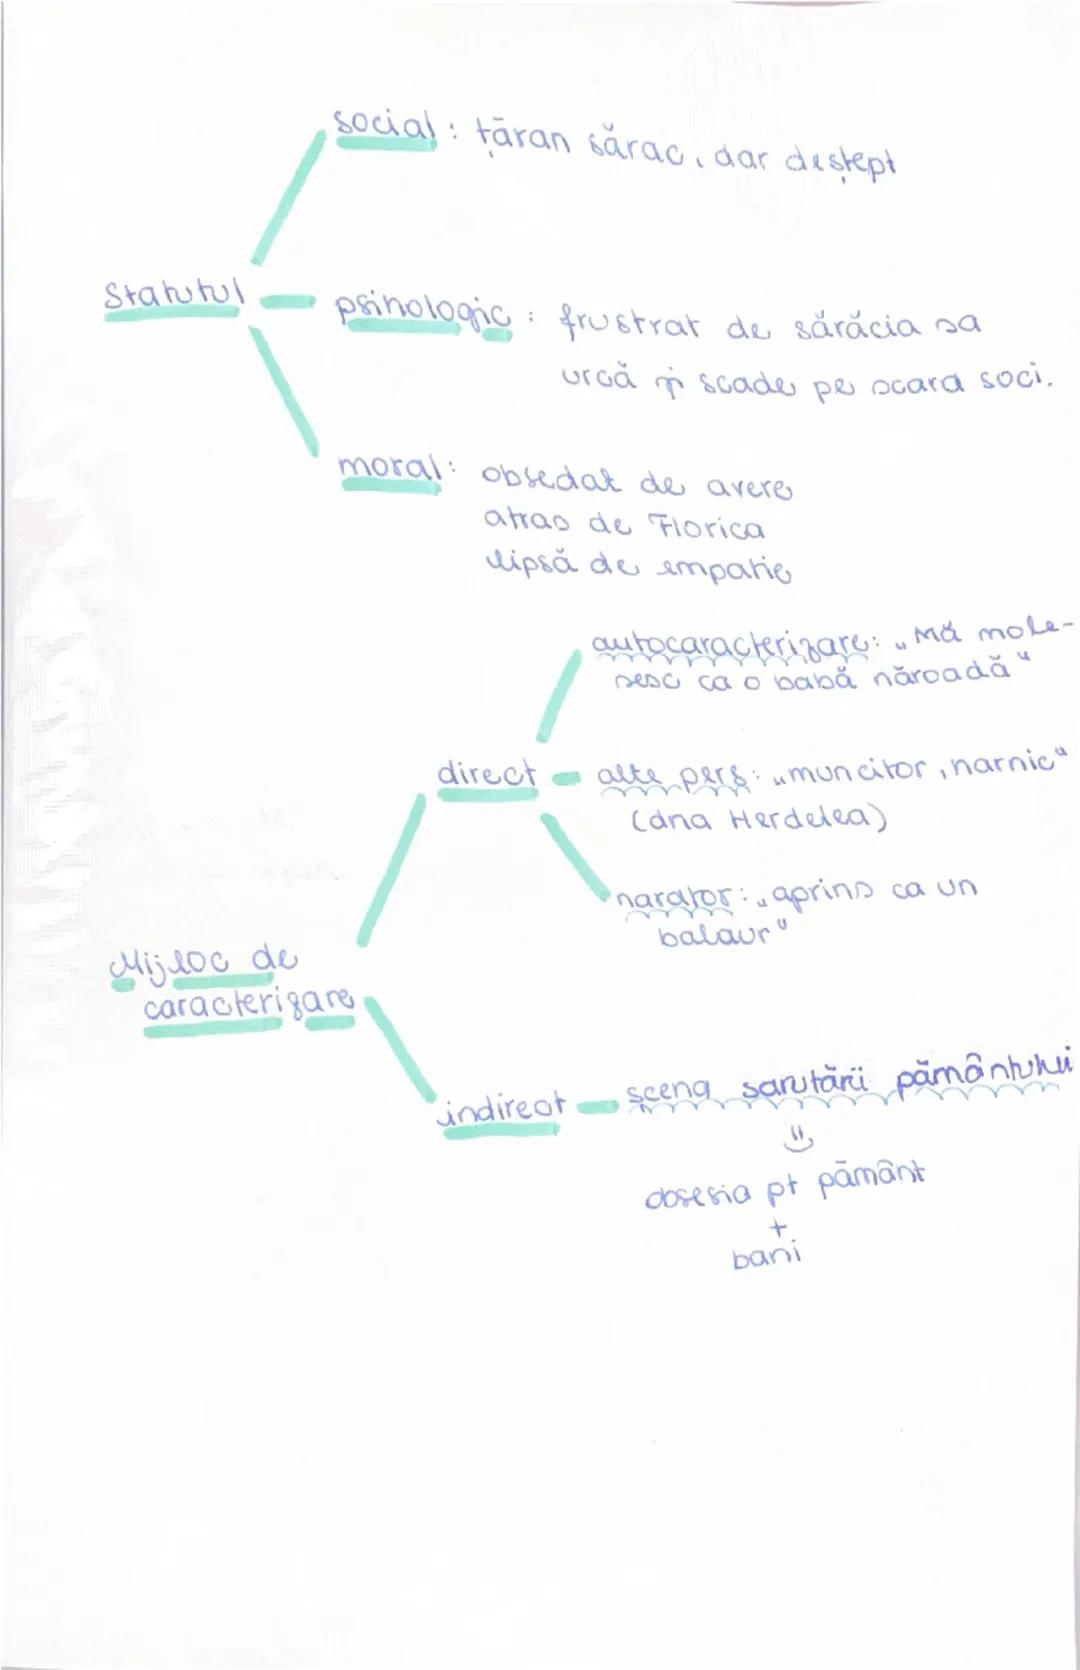 social: țăran sărac, dar deștept
Statutul
psihologic: frustrat de sărăcia sa
urcă și scade pe scara soci.
moral: obsedat de avere
atras de Florica
lipsă de empatie
autocaracterizare: „Mă mole-
șesc ca o babă năroadă"
direct
alte pers: „muncitor, harnic"
(dna Herdelea)
narator: „aprins ca un
balaur"
Mijloc de
caracterizare
indirect
scena sarutării pământului
obsesia pt pământ
+
bani